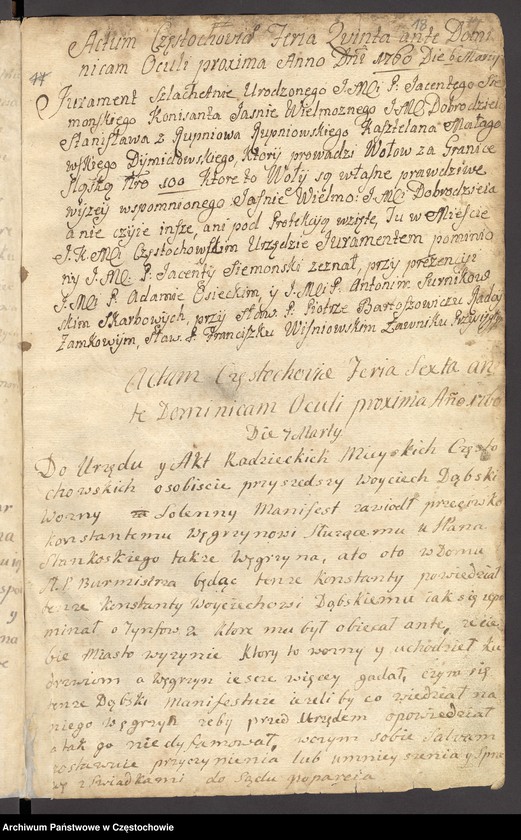 18
Actum Częstochoviæ Feria Quinta ante Domi-
nicam Oculi proxima Anno Dni 1760 Die 6 Marty
44
Jurament Szlachetnie Urodzonego J.Mci P. Jacentego Sie-
mońskiego Konisarza Jasnie Wielmoznego J.Mci Dobrodzieia
Stanisława z Rupniowa Rupniowskiego Kasztelana Małago-
wskiego Dymidowskiego, Ktory prowadzi Wołow za Granice
Sląską Nro 100 Ktore to Woły są własne prawdziwe
wyzey wspomnionego Jasnie Wielmo: J.Mci Dobrodzieia
a nie czyie insze, ani pod Protekcyą wzięte, Tu w Miescie
J.K.Mci Częstochowskim Urzędzie Juramentem pomienio-
ny J.Mc: P: Jacenty Siemonski zeznał, przy prezencyi
J.Mci P. Adamie Osieckim, y J.Mci P. Antonim
Skarbowych, przy Sław. P. Piotrze Bartoszowiczu Raday
Zamkowym, Sław. P. Franciszku Wisniowskim Ławniku
Actum Częstochoviæ Feria Sexta an-
te Dominicam Oculi proxima Año. 1760
Die 7 Marty
Do Urzędu y Akt Radzieckich Mieyskich Często-
chowskich osobiscie przyszedszy Woyciech Dąbski
Worny Solenny Manifest zaniosł przeciwko
Konstantemu Węgrzynowi Słuzącemu u Pana
Stankoskiego takze Węgrzyna, a to oto w Domu
P. Burmistrza będąc tenze Konstanty powiedział
tenze Konstanty Woyciechowi Dąbskiemu iak się upo-
minał o Tynfow 2 Ktore mu był obiecał ante,
bie Miasto wyzynie Ktory to worny y uchodzieł ku
drzwiom a Węgrzyn iesce więcey gadał, czym się
tenze Dąbski Manifestuie iezeli by co wiedział na
niego Węgrzyn zeby przed Urzędem opowiedział
a tak go nie dyfamował, worym sobie Salvam
zostawuie przyczynienia lub umnieyszenia y Spra-
wy z Swiadkami do Sądu poparcia
Archiwum Państwowe w Częstochowie